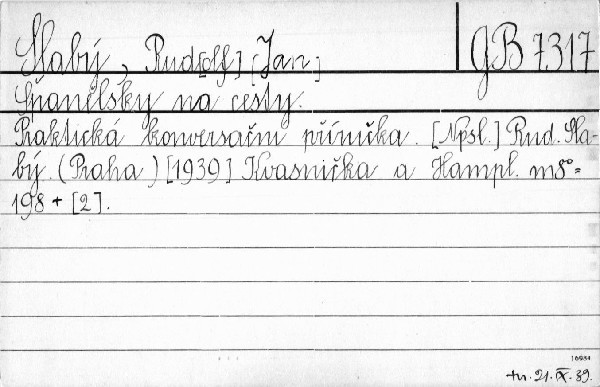 Slabý, Rud[olf] [Jan] GB 7317
Španělsky na cesty.
Praktická konversační příručka. [Npsl.] Rud. Sla-
bý. (Praha) [1939] Kvasnička a Hampl. m8°=
198 + [2].
16984
tu. 21. IX. 39.